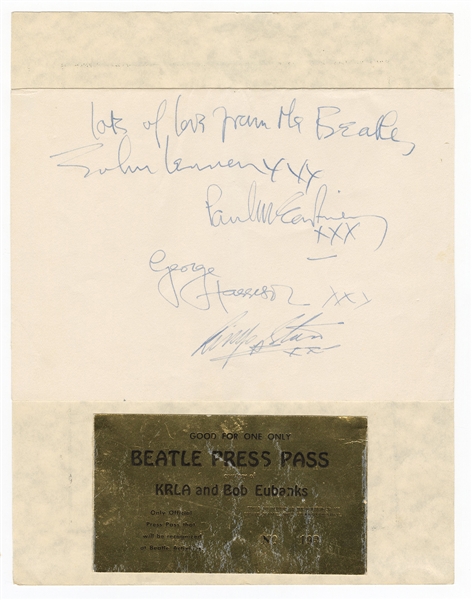 lots of love from the Beatles
John Lennon xxx
Paul McCartney
xxx
George
Harrison xxx
Ringo Starr
xx
GOOD FOR ONE ONLY
BEATLE PRESS PASS
KRLA and Bob Eubanks
Only Official
Press Pass that
will be recognized
at Beatle